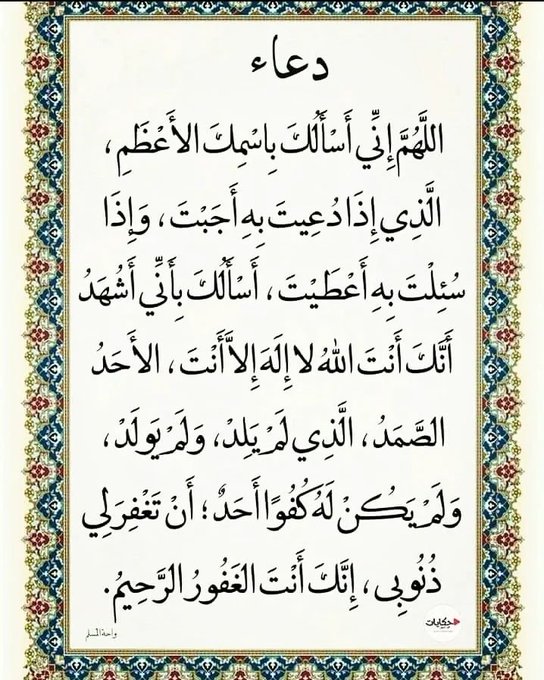 دعاء
اللَّهُمَّ إِنِّي أَسْأَلُكَ بِاسْمِكَ الأَعْظَمِ ،
الَّذِي إِذَا دُعِيتَ بِهِ أَجَبْتَ ، وَإِذَا
سُئِلْتَ بِهِ أَعْطَيْتَ ، أَسْأَلُكَ بِأَنِّي أَشْهَدُ
أَنَّكَ أَنْتَ اللهُ لا إِلَهَ إِلاَّ أَنْتَ ، الأَحَدُ
الصَّمَدُ ، الَّذِي لَمْ يَلِدْ ، وَلَمْ يَولَدْ ،
وَلَمْ يَكُنْ لَهُ كُفُوًا أَحَدٌ ؛ أَنْ تَغْفِرَ لِي
ذُنُوبِى ، إِنَّكَ أَنْتَ الغَفُورُ الرَّحِيمُ .
حكايات
واحة المسلم